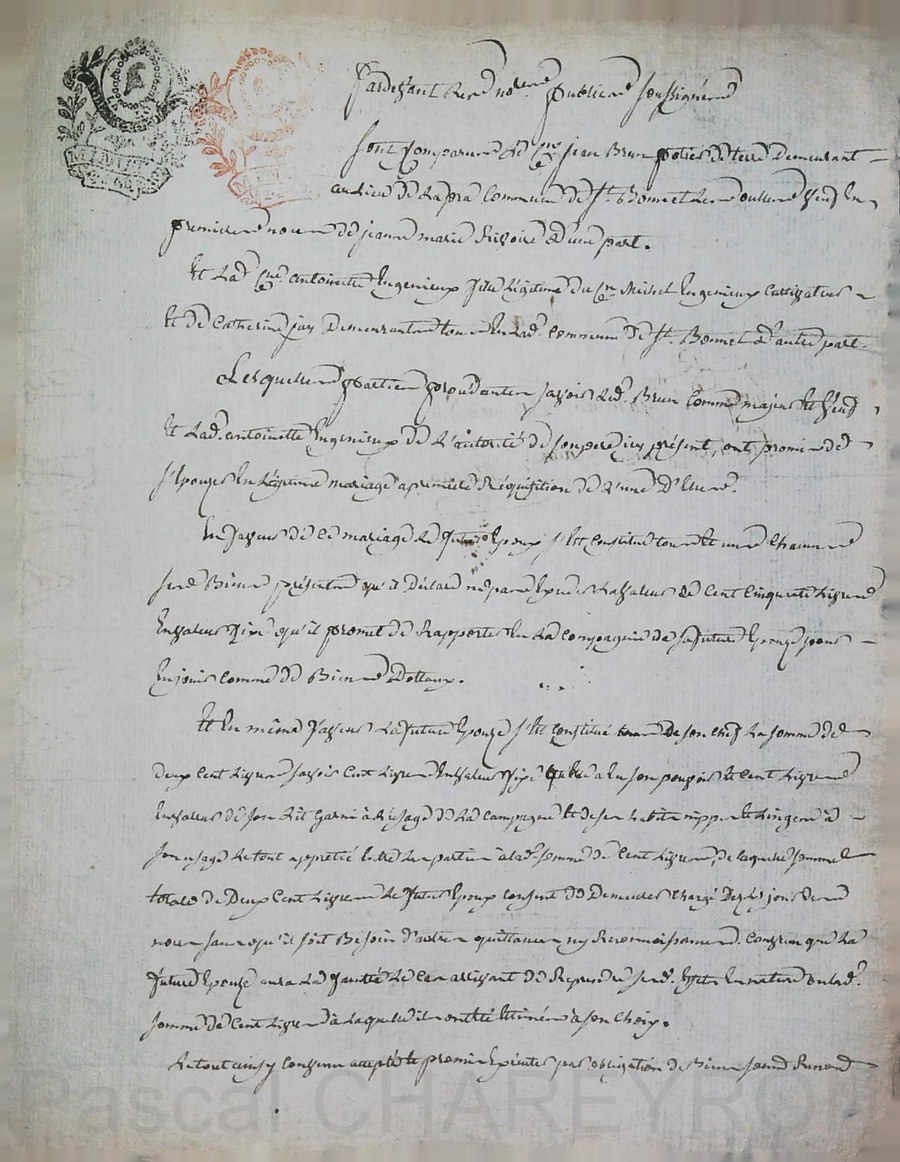 Pardevant les nores publics soussignés
Sont comparus le Cn jean Brun potier de terre demeurant
au lieu de Lapra Commune de St. Bonnet veuf en
premieres noces de jeanne marie d'une part.
Et la Cne antoinette Engenieux fille légitime du Cn Michel Engenieux Cultivateur
Et de Catherine jay demeurants tous en lad. Commune de St. Bonnet d'autre part.
Lesquelles parties procédantes savoir led. Brun Comme majeur et veuf
Et lad. antoinette Engenieux de L'autorité de son pere icy présent, ont promis de
s'Epouzer En légitime mariage a premiere Réquisition de L'une D'Elles.
En faveur de Ce mariage le futur Epoux s'Est Constitué tous Et uns chacuns
ses Biens présents qu'il Déclare ne pas Excéder la valeur de Cent Cinquante Livres
En valeur fixe qu'il promet de Rapporter En La Compagnie de sa future Epouze pour
En jouir Comme de Biens dottaux.
Et En même faveur La future Epouze s'Est Constitué de son chef La somme de
deux Cent Livres savoir Cent Livres En valeur fixe a En son pouvoir Et Cent Livres
En valeur de son Lit Garni à L'usage de La Campagne Et de ses habits nippes Et Linges à
son usage Le tout apprétié Entre Les parties à lad. somme de Cent Livres, de laquelle somme
totale de Deux Cent Livres Le futur Epoux Consent de Demeurer chargé Dès Le jour des
noces sans qu'il soit Besoin d'autres quittances ny Reconnoissances. Convenu que La
future Epouze aura La faculté Le Cas arrivant de Reprendre sesd. Effets En nature ou lad.
somme de Cent Livres à laquelle ils ont été Estimés à son Choix.
Le tout ainsy Convenu accepté Et promis Exécuter par obligation de Biens
Pascal CHAREYRON